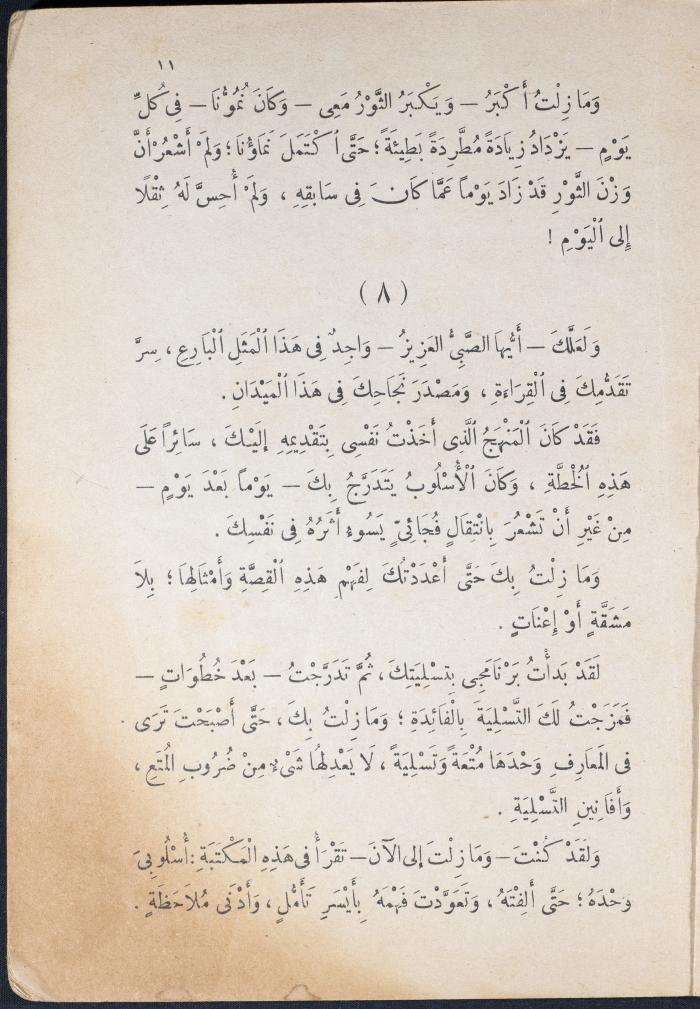 ١١
وَمَا زِلْتُ أَكْبَرُ – وَيَكْبَرُ الثَّوْرُ مَعِى – وَكَانَ نُمُوُّنَا – فِى كُلِّ
يَوْمٍ – يَزْدَادُ زِيَادَةً مُطَّرِدَةً بَطِيئَةً ؛ حَتَّى ٱكْتَمَلَ نَمَاؤُنَا ؛ وَلَمْ أَشْعُرْ أَنَّ
وَزْنَ الثَّوْرِ قَدْ زَادَ يَوْماً عَمَّا كَانَ فِى سَابِقِهِ ، وَلَمْ أُحِسَّ لَهُ ثِقْلًا
إِلى ٱلْيَوْمِ !
( ٨ )
وَلَعَلَّكَ – أَيُّهَا الصَّبِىُّ العَزِيزُ – وَاجِدٌ فِى هَذَا ٱلْمَثَلِ ٱلْبَارِعِ ، سِرَّ
تَقَدُّمِكَ فِى ٱلْقِرَاءَةِ ، وَمَصْدَرَ نَجَاحِكَ فِى هَذَا ٱلْمَيْدَانِ .
فَقَدْ كَانَ ٱلْمَنْهَجُ ٱلَّذِى أَخَذْتُ نَفْسِى بِتَقْدِيمِهِ إِلَيْكَ ، سَائِراً عَلَى
هَذِهِ ٱلْخُطَّةِ ، وَكَانَ ٱلْأُسْلُوبُ يَتَدَرَّجُ بِكَ – يَوْماً بَعْدَ يَوْمٍ –
مِنْ غَيْرِ أَنْ تَشْعُرَ بِانْتِقَالٍ فُجَائِىٍّ يَسُوءُ أَثَرُهُ فِى نَفْسِكَ .
وَمَا زِلْتُ بِكَ حَتَّى أَعْدَدْتُكَ لِفَهْمِ هَذِهِ ٱلْقِصَّةِ وَأَمْثَالِهَا ؛ بِلاَ
مَشَقَّةٍ أَوْ إِعْنَاتٍ .
لَقَدْ بَدَأْتُ بَرْنَامَجِى بِتَسْلِيَتِكَ ، ثُمَّ تَدَرَّجْتُ – بَعْدَ خُطُوَاتٍ –
فَمَزَجْتُ لَكَ التَّسْلِيَةَ بِالْفَائِدَةِ ؛ وَمَا زِلْتُ بِكَ ، حَتَّى أَصْبَحْتَ تَرَى
فى المَعَارِفِ وَحْدَهَا مُتْعَةً وَتَسْلِيَةً ، لَا يَعْدِلُهَا شَىْءٌ مِنْ ضُرُوبِ المُتَعِ ،
وَأَفَانِينِ التَّسْلِيَةِ .
وَلَقَدْ كُنْتَ – وَمَا زِلْتَ إلى الآنَ – تَقْرَأُ فى هَذِهِ الْمَكْتَبَةِ : أُسْلُوبِىَ
وحْدَهُ ؛ حَتَّى أَلِفْتَهُ ، وَتَعَوَّدْتَ فَهْمَهُ بِأَيْسَرِ تَأَمُّلٍ ، وَأَدْنَى مُلاَحَظَةٍ .